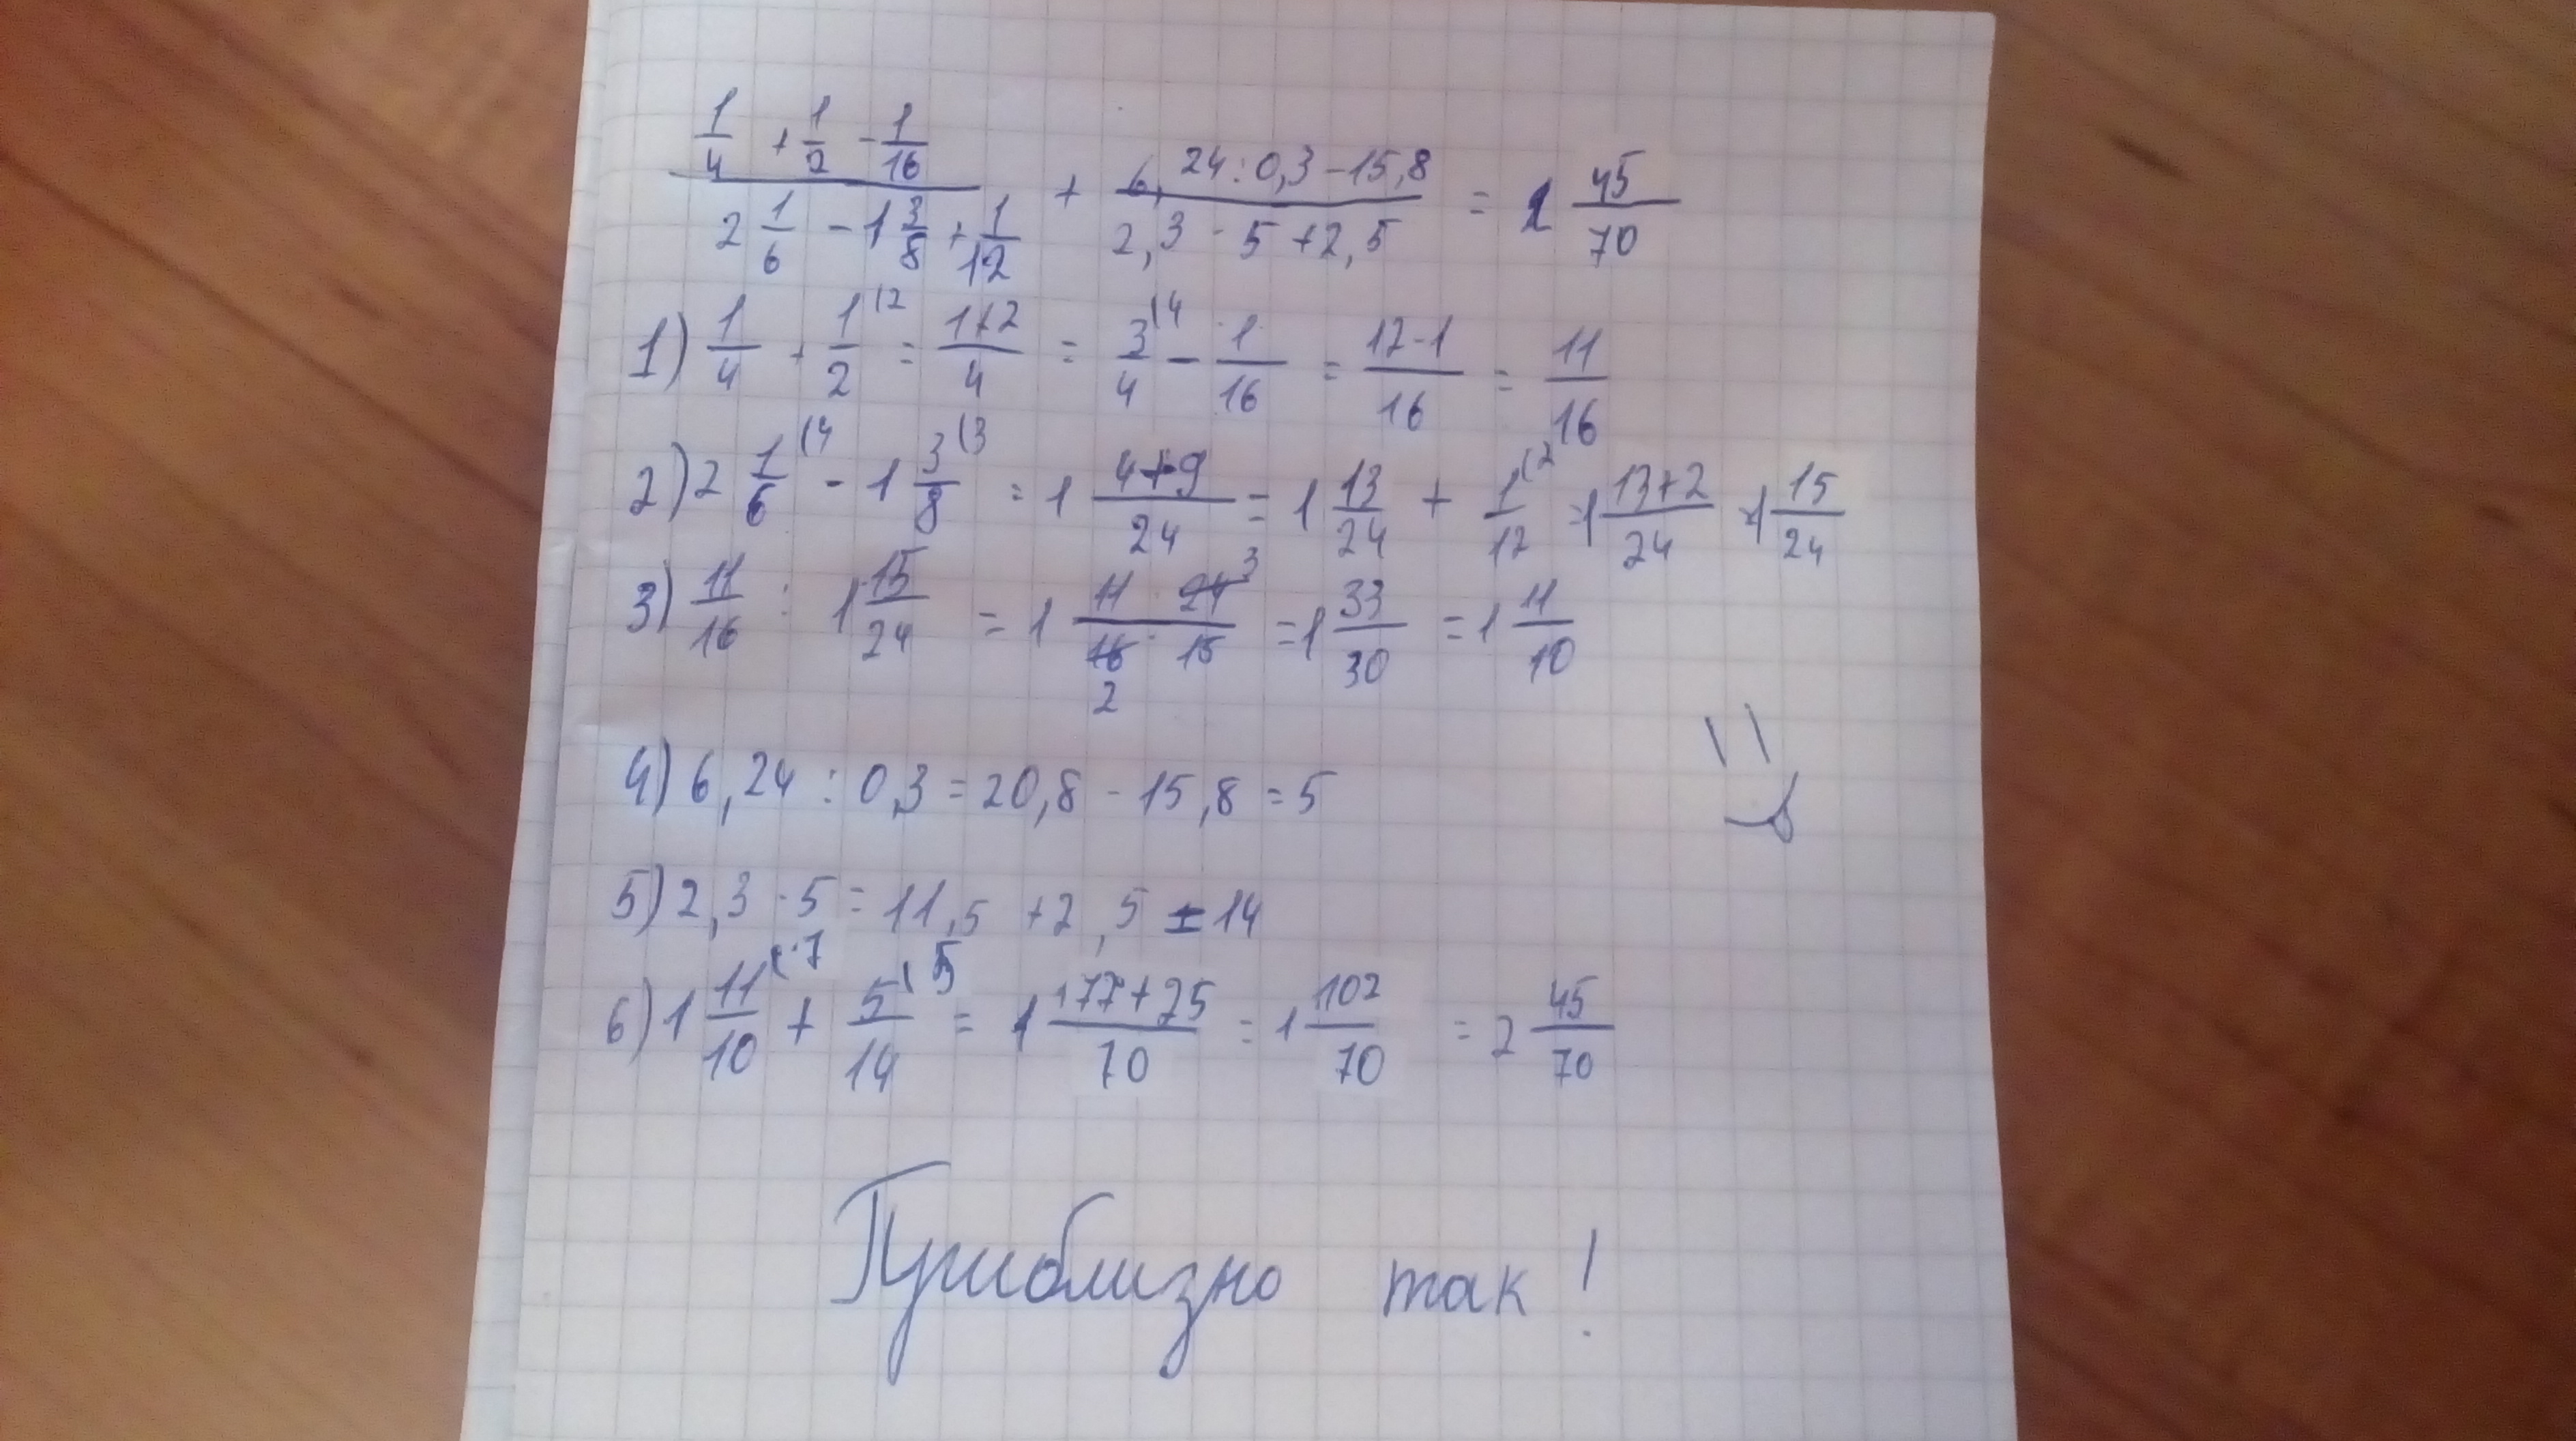 1/4 + 1/2 - 1/16 / 2 1/6 - 1 3/8 + 1/12 + 6,24 : 0,3 - 15,8 / 2,3 · 5 + 2,5 = 2 45/70
1) 1/4 + 1/2 (2 = 1+2/4 = 3/4 (4 - 1/16 = 12-1/16 = 11/16
2) 2 1/6 (4 - 1 3/8 (3 = 1 4+9/24 = 1 13/24 + 1/12 (2 = 1 13+2/24 = 1 15/24
3) 11/16 : 1 15/24 = 1 11 · 24 3/16 · 15 2 = 1 33/30 = 1 11/10
4) 6,24 : 0,3 = 20,8 - 15,8 = 5
5) 2,3 · 5 = 11,5 + 2,5 = 14
6) 1 11/10 (·7 + 5/14 (5 = 1 77+25/70 = 1 102/70 = 2 45/70
Приблизно так!